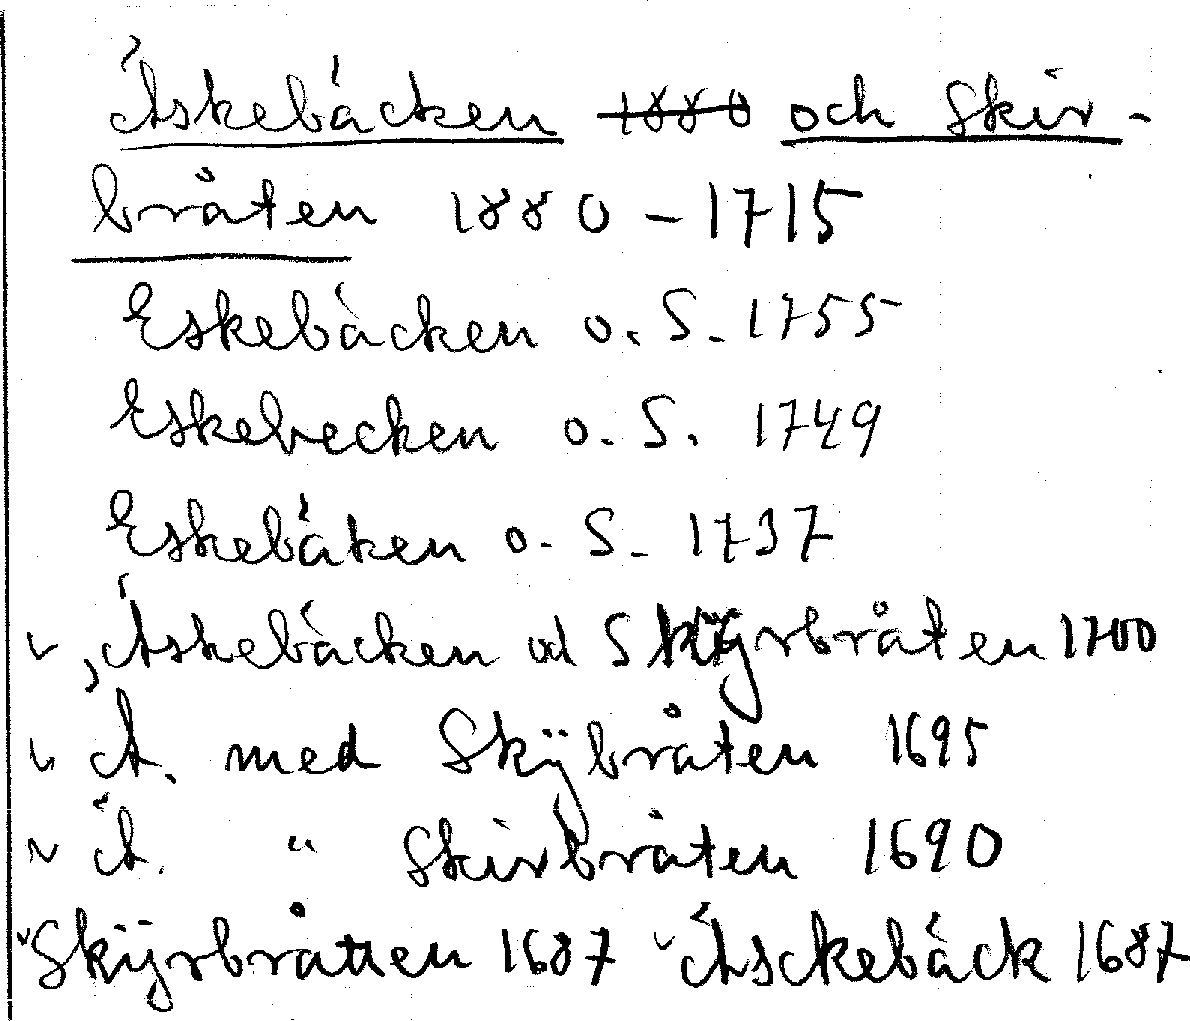 Äskebäcken 1880 och Skir-
bråten 1880 - 1715
Eskebäcken o. S. 1755
Eskebecken o. S. 1749
Eskebäken o. S. 1737
Äskebäcken od Skÿrbråten 1700
Ä. med Skÿbråten 1695
Ä. " Skirbråten 1690
Skÿrbråtten 1687 Äsckebäck 1687